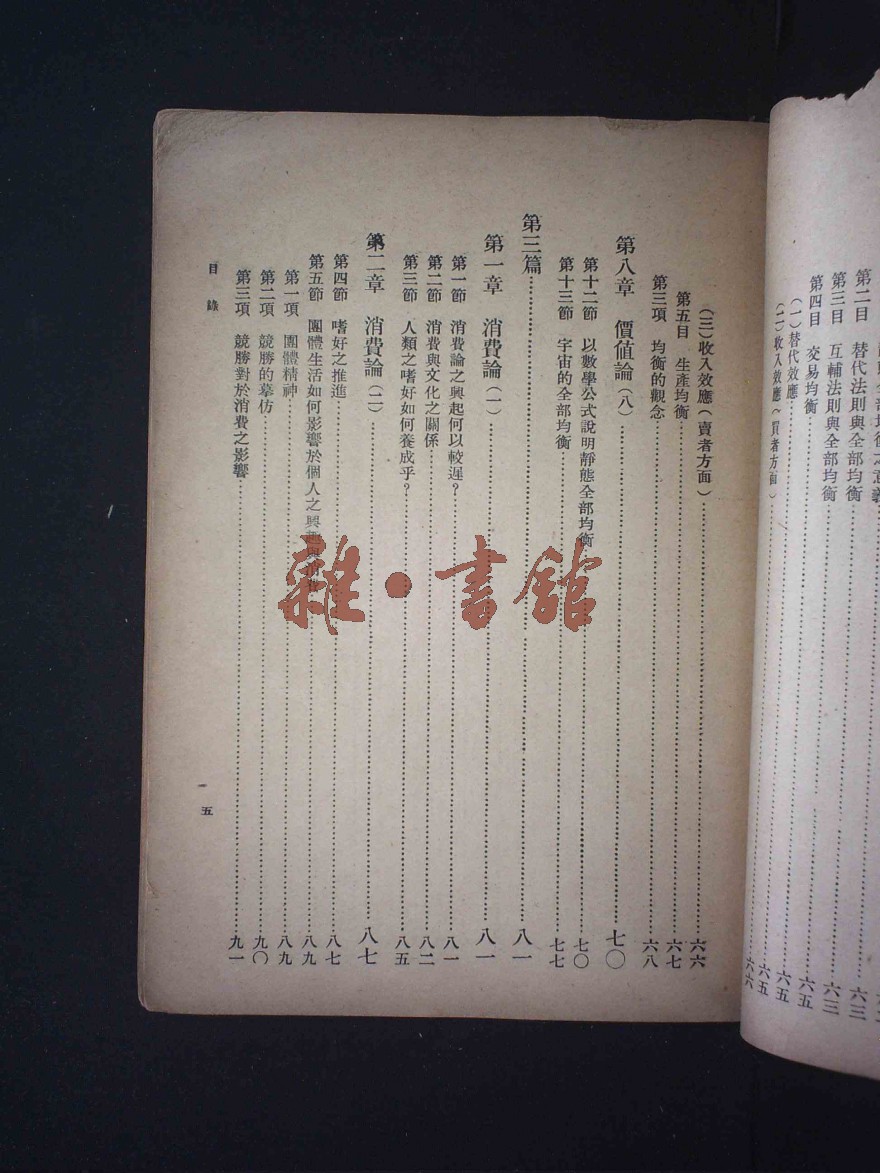 全部均衡之意義
第二目 替代法則與全部均衡……六三
第三目 互輔法則與全部均衡……六三
第四目 交易均衡……六五
(一)替代效應……六五
(二)收入效應(買者方面)……六五
六六
(三)收入效應(賣者方面)……六六
第五目 生產均衡……六七
第三項 均衡的觀念……六八
第八章 價值論(八)……七〇
第十二節 以數學公式說明靜態全部均衡……七〇
第十三節 宇宙的全部均衡……七七
第三篇……八一
第一章 消費論(一)……八一
第一節 消費論之興起何以較遲?……八一
第二節 消費與文化之關係……八二
第三節 人類之嗜好如何養成乎?……八五
第二章 消費論(二)……八七
第四節 嗜好之推進……八七
第五節 團體生活如何影響於個人之興 與……八九
第一項 團體精神……八九
第二項 競勝的摹仿……九〇
第三項 競勝對於消費之影響……九一
目錄
五
雜·書館